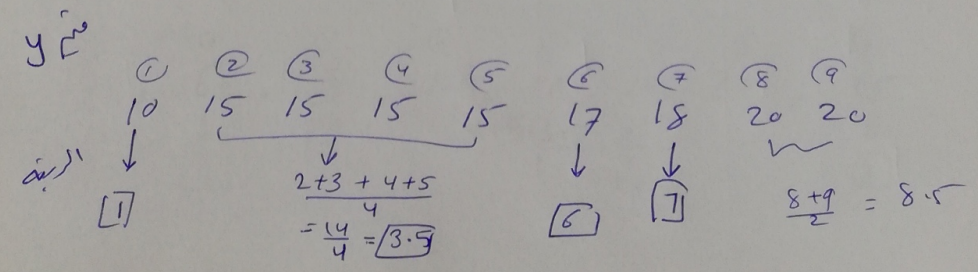 y قيم
① ② ③ ④ ⑤ ⑥ ⑦ ⑧ ⑨
10 15 15 15 15 17 18 20 20
الرتبة
1
2+3+4+5/4
= 14/4 = 3.5
6
7
8+9/2 = 8.5